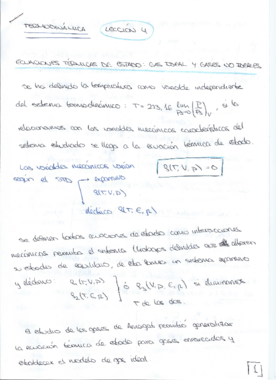 TERMODINÁMICA LECCIÓN 4
ECUACIONES TÉRMICAS DE ESTADO: GAS IDEAL Y GASES NO IDEALES
Se ha definido la temperatura como variable independiente
del sistema termodinámico: T = 273,16 lim P→0 (P/P₀)V, si la
relacionamos con las variables mecánicas características del
sistema estudiado se llega a la ecuación térmica de estado.
Las variables mecánicas varían
según el
expansivo
f(T,V,p) = 0
dieléctrico
Se definen tantas ecuaciones de estado como interacciones
mecánicas permita el sistema
su estado de equilibrio, de esta forma un sistema expansivo
y dieléctrico
si eliminamos
T de las dos.
El estudio de los gases de permitió generalizar
la ecuación térmica de estado para gases enrarecidos y
establecer el modelo de gas ideal.
1